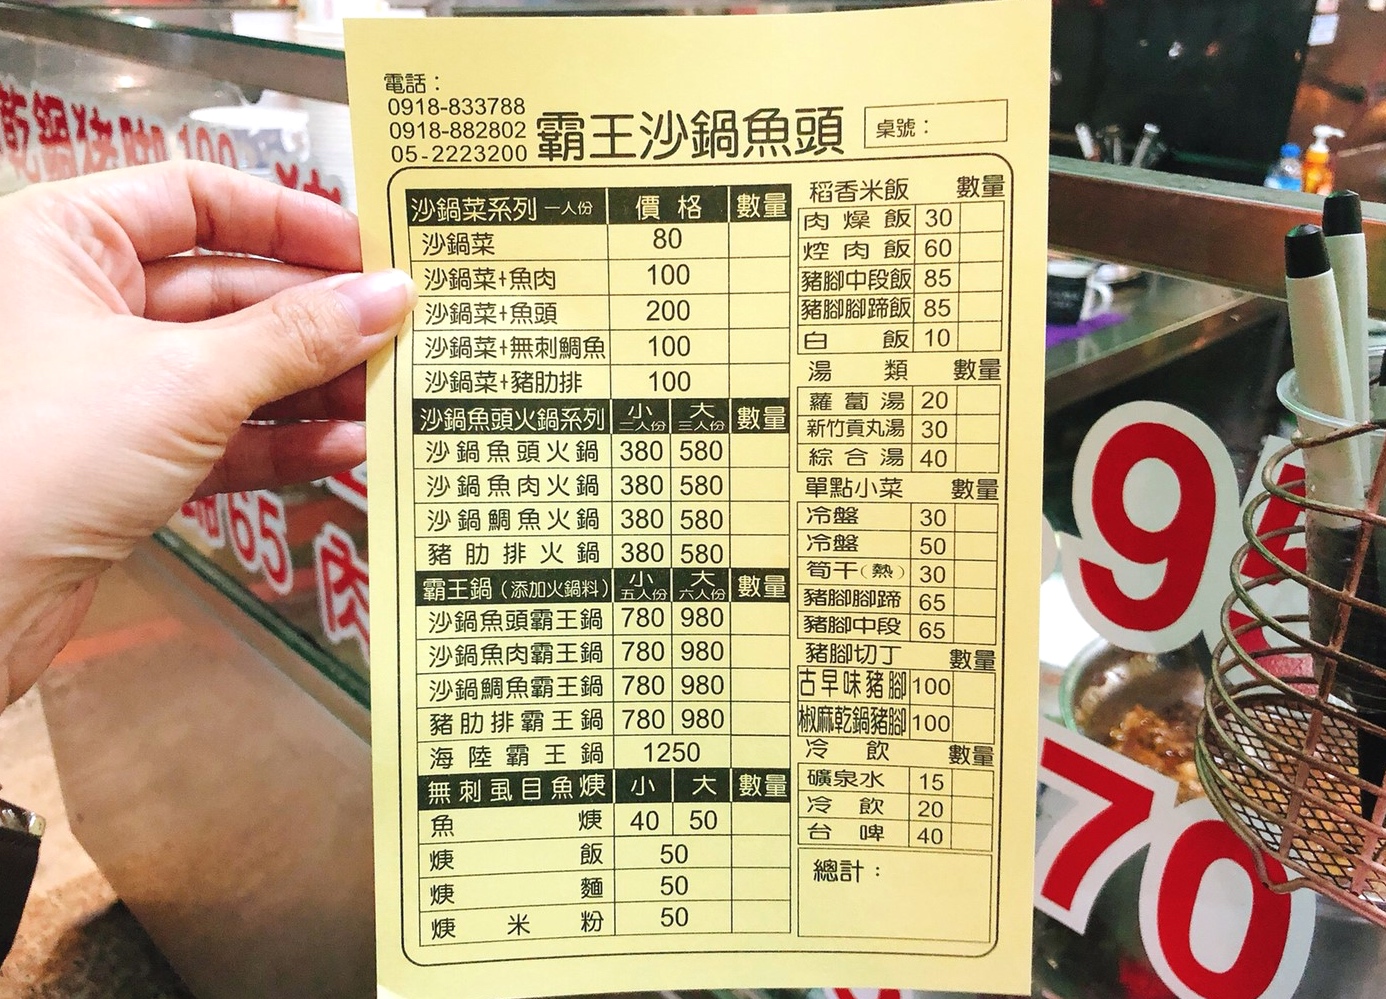 電話：
0918-833788
0918-882802
05-2223200
霸王沙鍋魚頭
桌號：
沙鍋菜系列 一人份 價格 數量
沙鍋菜 80
沙鍋菜+魚肉 100
沙鍋菜+魚頭 200
沙鍋菜+無刺鯛魚 100
沙鍋菜+豬肋排 100
沙鍋魚頭火鍋系列 小 二人份 大 三人份 數量
沙鍋魚頭火鍋 380 580
沙鍋魚肉火鍋 380 580
沙鍋鯛魚火鍋 380 580
豬肋排火鍋 380 580
霸王鍋（添加火鍋料） 小 五人份 大 六人份 數量
沙鍋魚頭霸王鍋 780 980
沙鍋魚肉霸王鍋 780 980
沙鍋鯛魚霸王鍋 780 980
豬肋排霸王鍋 780 980
海陸霸王鍋 1250
無刺虱目魚焿 小 大 數量
魚焿 40 50
焿飯 50
焿麵 50
焿米粉 50
稻香米飯 數量
肉燥飯 30
焢肉飯 60
豬腳中段飯 85
豬腳腳蹄飯 85
白飯 10
湯類 數量
蘿蔔湯 20
新竹貢丸湯 30
綜合湯 40
單點小菜 數量
冷盤 30
冷盤 50
筍干（熱） 30
豬腳腳蹄 65
豬腳中段 65
豬腳切丁 數量
古早味豬腳 100
椒麻乾鍋豬腳 100
冷飲 數量
礦泉水 15
冷飲 20
台啤 40
總計：
乾鍋豬腳 100
65
肉
9
70